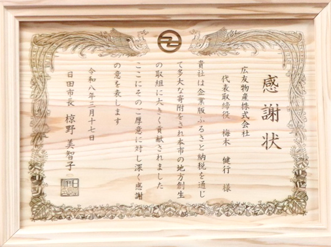 感謝状
広友物産株式会社
代表取締役 梅木 健行 様
貴社は企業版ふるさと納税を通じ
て多大な寄附をされ本市の地方創生
の取組に大きく貢献されました
ここにそのご厚意に対し深く感謝
の意を表します
令和八年三月十七日
日田市長 椋野 美智子